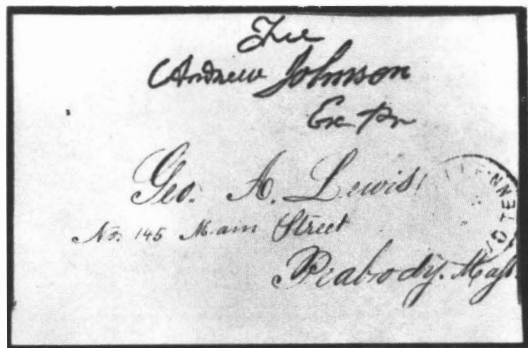 Free
Andrew Johnson
Ex Pr
Geo. A. Lewis
No. 145 Main Street
Peabody. Mass.
TENN